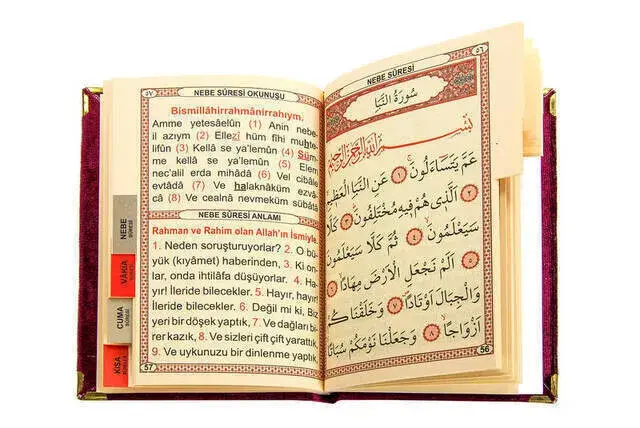 ٥٦
NEBE SÛRESİ
سُورَةُ النَّبَأِ
بِسْمِ اللهِ الرَّحْمٰنِ الرَّحِيمِ
عَمَّ يَتَسَاءَلُونَ ١ عَنِ النَّبَأِ الْعَظِيمِ
٢ اَلَّذِي هُمْ فِيهِ مُخْتَلِفُونَ ٣ كَلَّا
سَيَعْلَمُونَ ٤ ثُمَّ كَلَّا سَيَعْلَمُونَ
٥ اَلَمْ نَجْعَلِ الْاَرْضَ مِهَادًا ٦
وَالْجِبَالَ اَوْتَادًا ٧ وَخَلَقْنَاكُمْ
اَزْوَاجًا ٨ وَجَعَلْنَا نَوْمَكُمْ سُبَاتًا
56
٥٧
NEBE SÛRESİ OKUNUŞU
Bismillâhirrahmânirrahıym.
Amme yetesaêlûn (1) Anin nebe-
il azıym (2) Ellezî hüm fîhi muhte-
lifûn (3) Kellâ se ya'lemûn (4) Süm-
me kellâ se ya'lemûn (5) Elem
nec'alil erda mihâdâ (6) Vel cibâle
evtâdâ (7) Ve halaknâküm ezvâ-
câ (8) Ve cealnâ nevmeküm sübâtâ
NEBE SÛRESİ ANLAMI
Rahman ve Rahim olan Allah'ın İsmiyle.
1. Neden soruşturuyorlar? 2. O bü-
yük (kıyâmet) haberinden, 3. Ki on-
lar, onda ihtilâfa düşüyorlar. 4. Ha-
yır! İleride bilecekler. 5. Hayır, hayır!
İleride bilecekler. 6. Değil mi ki, Biz
yeri bir döşek yaptık, 7. Ve dağları bi-
rer kazık, 8. Ve sizleri çift çift yarattık,
9. Ve uykunuzu bir dinlenme yaptık,
57
NEBE
SÛRESİ
VÂKIA
CUMA
KISA